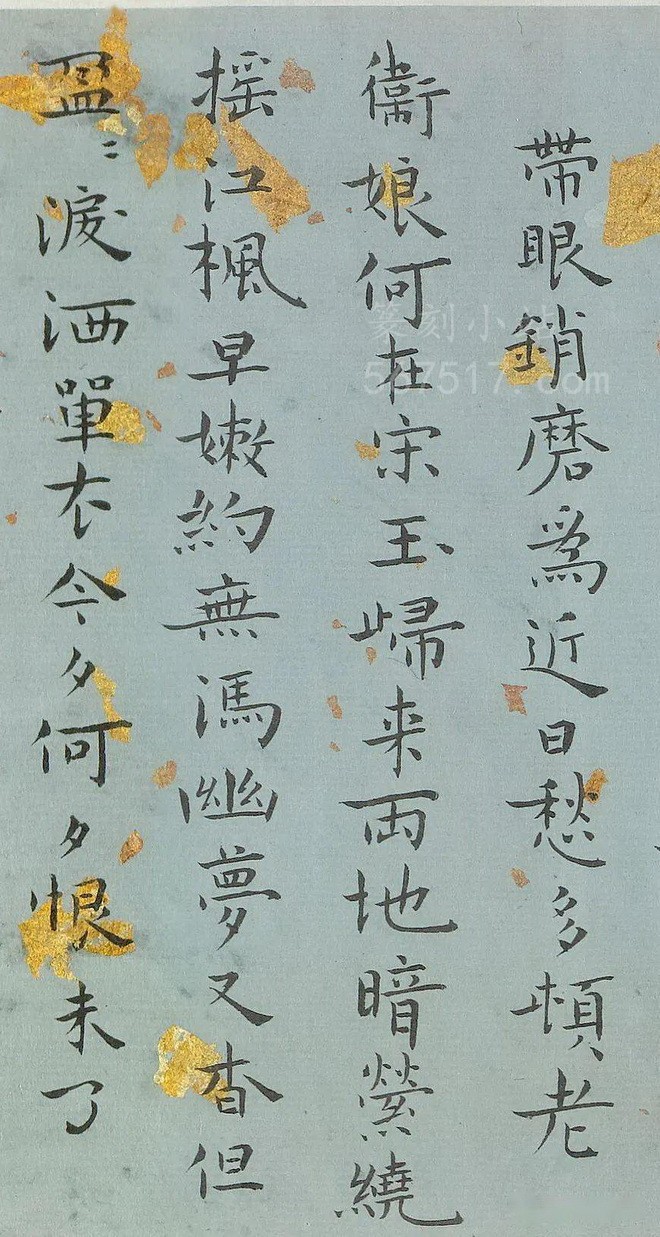 帶眼銷磨為近日愁多頓老
衞娘何在宋玉歸来兩地暗縈繞
摇江楓早嫩約無馮幽夢又杳但
盈〻淚洒單衣今夕何夕恨未了
篆刻小站
567517.com